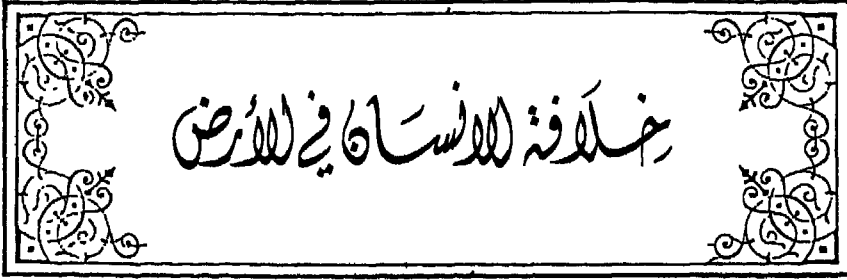 خِلَافة الانسَان في الأرض